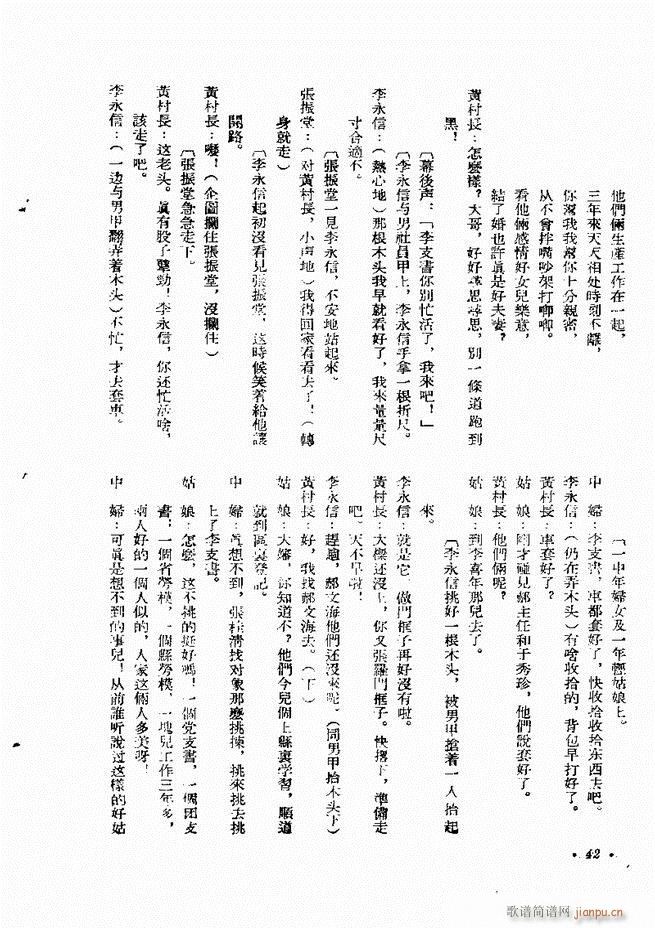 他們倆生產工作在一起，
三年來天天相处時刻不離，
你帮我我幫你十分親密，
从不會拌嘴吵架打唧唧。
看他倆感情好女兒樂意，
結了婚也許眞是好夫妻？
黃村長：怎麼樣？大哥，好好尋思尋思，別一條道跑到
黑！
〔幕後声：「李支書你別忙活了，我來吧！」
〔李永信与男社員甲上，李永信手拿一根折尺。
李永信：（熱心地）那根木头我早就看好了，我來量量尺
寸合適不。
〔張振堂一見李永信，不安地站起來。
張振堂：（对黃村長，小声地）我得回家看看去了！（轉
身就走）
〔李永信起初沒看見張振堂，这時候笑着給他讓
開路。
黃村長：噯！（企圖攔住張振堂，沒攔住）
〔張振堂急急走下。
黃村長：这老头。眞有股子犟勁！李永信，你还忙活啥，
該走了吧。
李永信：（一边与男甲翻弄着木头）不忙，才去套車。
〔一中年婦女及一年輕姑娘上。
中　婦：李支書，車都套好了，快收拾收拾东西去吧。
李永信：（仍在弄木头）有啥收拾的，背包早打好了。
黃村長：車套好了？
姑　娘：剛才碰見郝主任和于秀珍，他們說套好了。
黃村長：他們倆呢？
姑　娘：到李喜年那兒去了。
〔李永信挑好一根木头，被男甲搶着一人抬起
來。
李永信：就是它，做門框子再好沒有啦。
黃村長：大樑还沒上，你又張羅門框子。快撂下，準備走
吧。天不早啦！
李永信：趕趟，郝文海他們还沒來呢。（同男甲抬木头下）
黃村長：好，我找郝文海去。（下）
姑　娘：大嬸，你知道不？他們今兒個上縣裏学習，順道
就到區裏登記。
中　婦：眞想不到，張桂清找对象那麼挑揀，挑來挑去挑
上了李支書。
姑　娘：怎麼，这不挑的挺好嗎！一個党支書，一個团支
書，一個省勞模，一個縣勞模，一塊兒工作三年多，
兩人好的一個人似的，人家这倆人多美呀！
中　婦：可眞是想不到的事兒！从前誰听說过这樣的好姑
·42·
歌谱简谱网 jianpu.cn